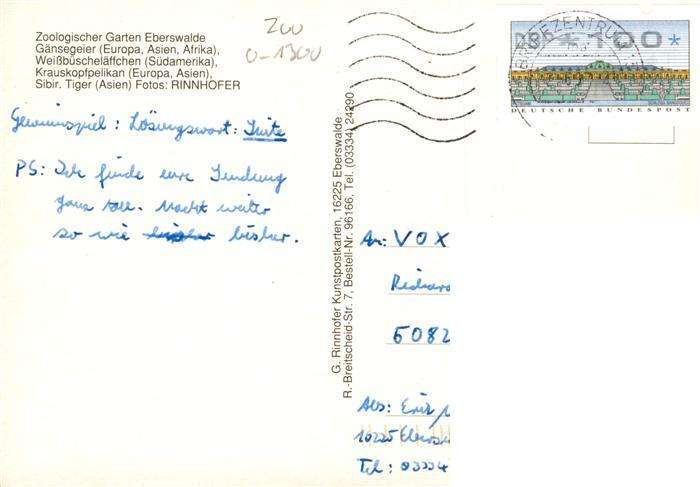 Zoologischer Garten Eberswalde
Gänsegeier (Europa, Asien, Afrika),
Weißbüscheläffchen (Südamerika),
Krauskopfpelikan (Europa, Asien),
Sibir. Tiger (Asien) Fotos: RINNHOFER
Zoo
0-1300
Gewinnspiel: Lösungswort: Tinte
PS: Ich finde eure Sendung
ganz toll. Macht weiter
so wie bisher bisher.
G. Rinnhofer Kunstpostkarten, 16225 Eberswalde
R.-Breitscheid-Str. 7, Bestell-Nr. 96166, Tel. (03334) 24290
BRIEFZENTRUM
100*
DEUTSCHE BUNDESPOST
An: VOX
Richard
5082
Abs: Eric
16225 Ebersw
Tel: 03334